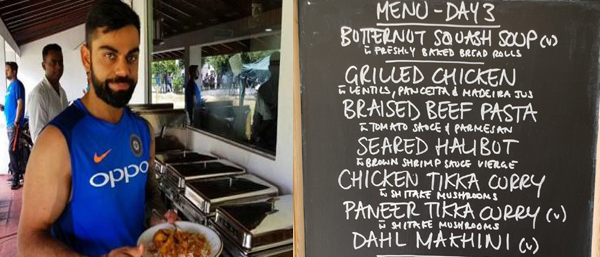 oppo
MENU - DAY 3
BUTTERNUT SQUASH SOUP (v)
w FRESHLY BAKED BREAD ROLLS
GRILLED CHICKEN
w LENTILS, PANCETTA & MADEIRA JUS
BRAISED BEEF PASTA
w TOMATO SAUCE & PARMESAN
SEARED HALIBUT
w BROWN SHRIMP SAUCE VIERGE
CHICKEN TIKKA CURRY
w SHITAKE MUSHROOMS
PANEER TIKKA CURRY (v)
w SHITAKE MUSHROOMS
DAHL MAKHINI (v)